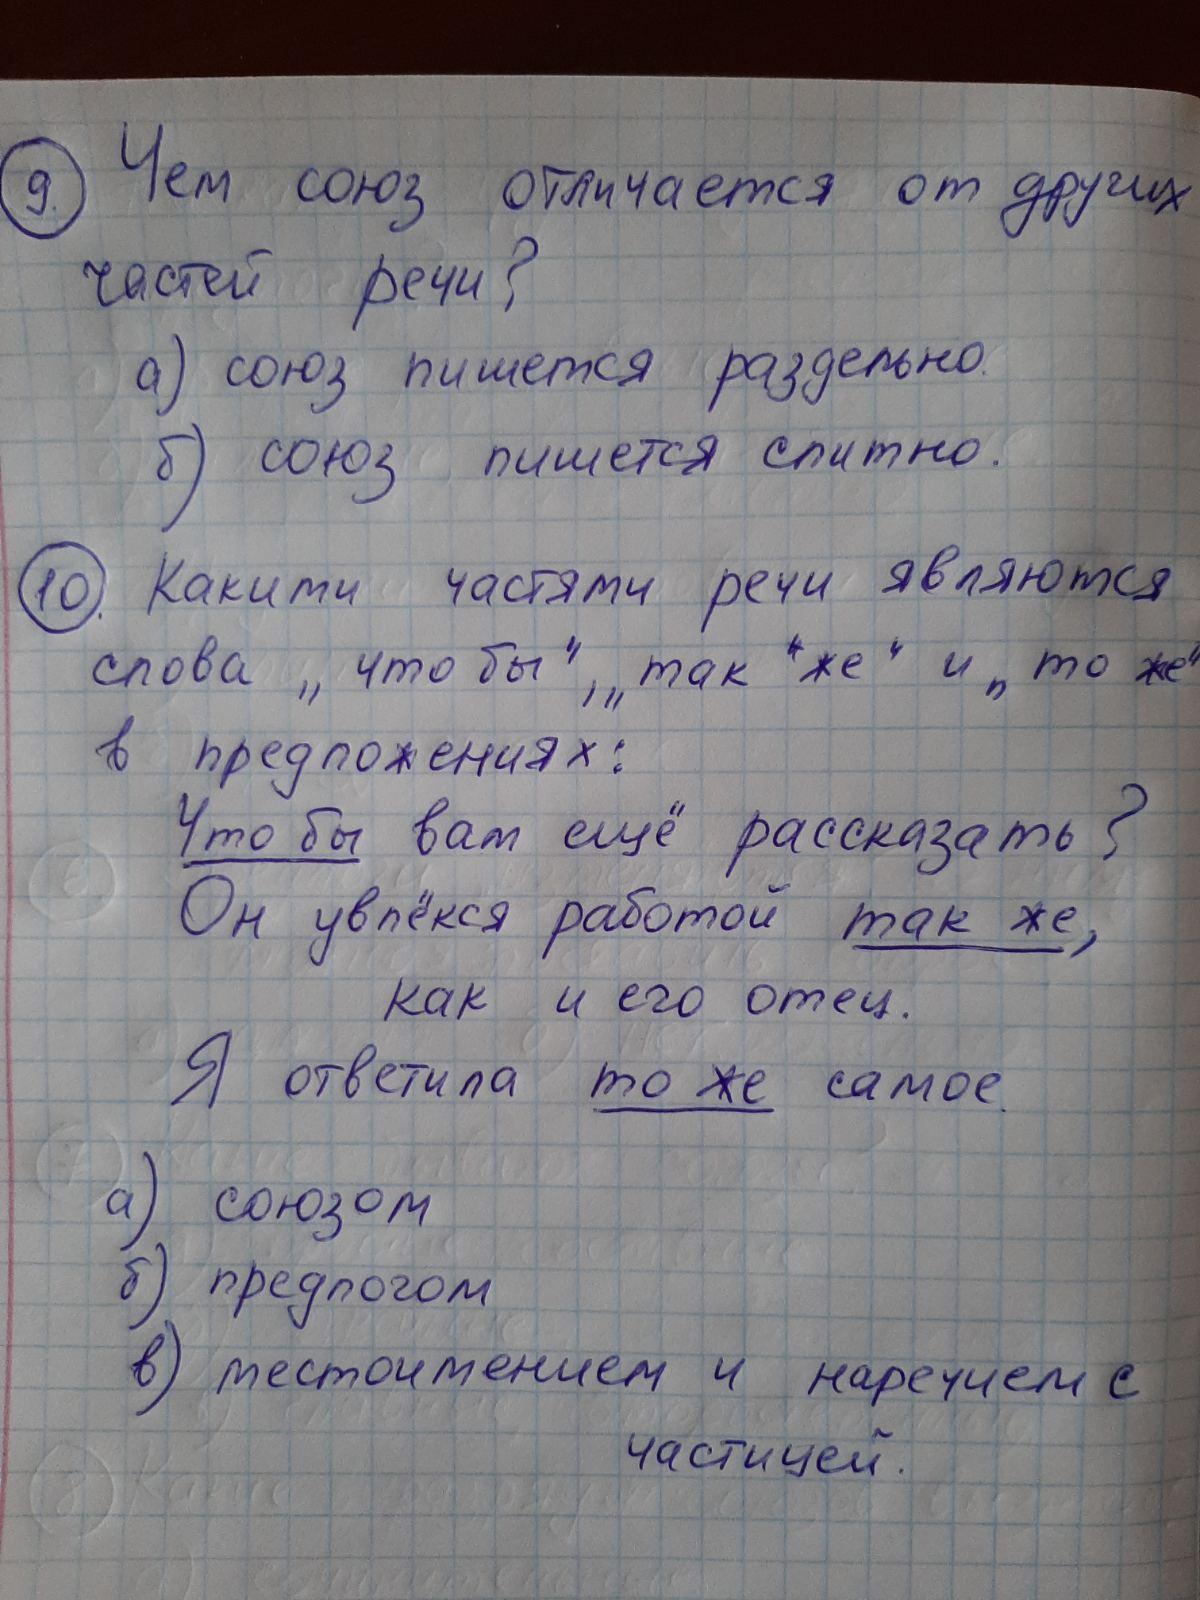 9. Чем союз отличается от других
частей речи?
а) союз пишется раздельно.
б) союз пишется слитно.
10. Какими частями речи являются
слова „что бы“, „так “же“ и „то же“
в предложениях:
Что бы вам ещё рассказать?
Он увлёкся работой так же,
как и его отец.
Я ответила то же самое.
а) союзом
б) предлогом
в) местоимением и наречием с
частицей.